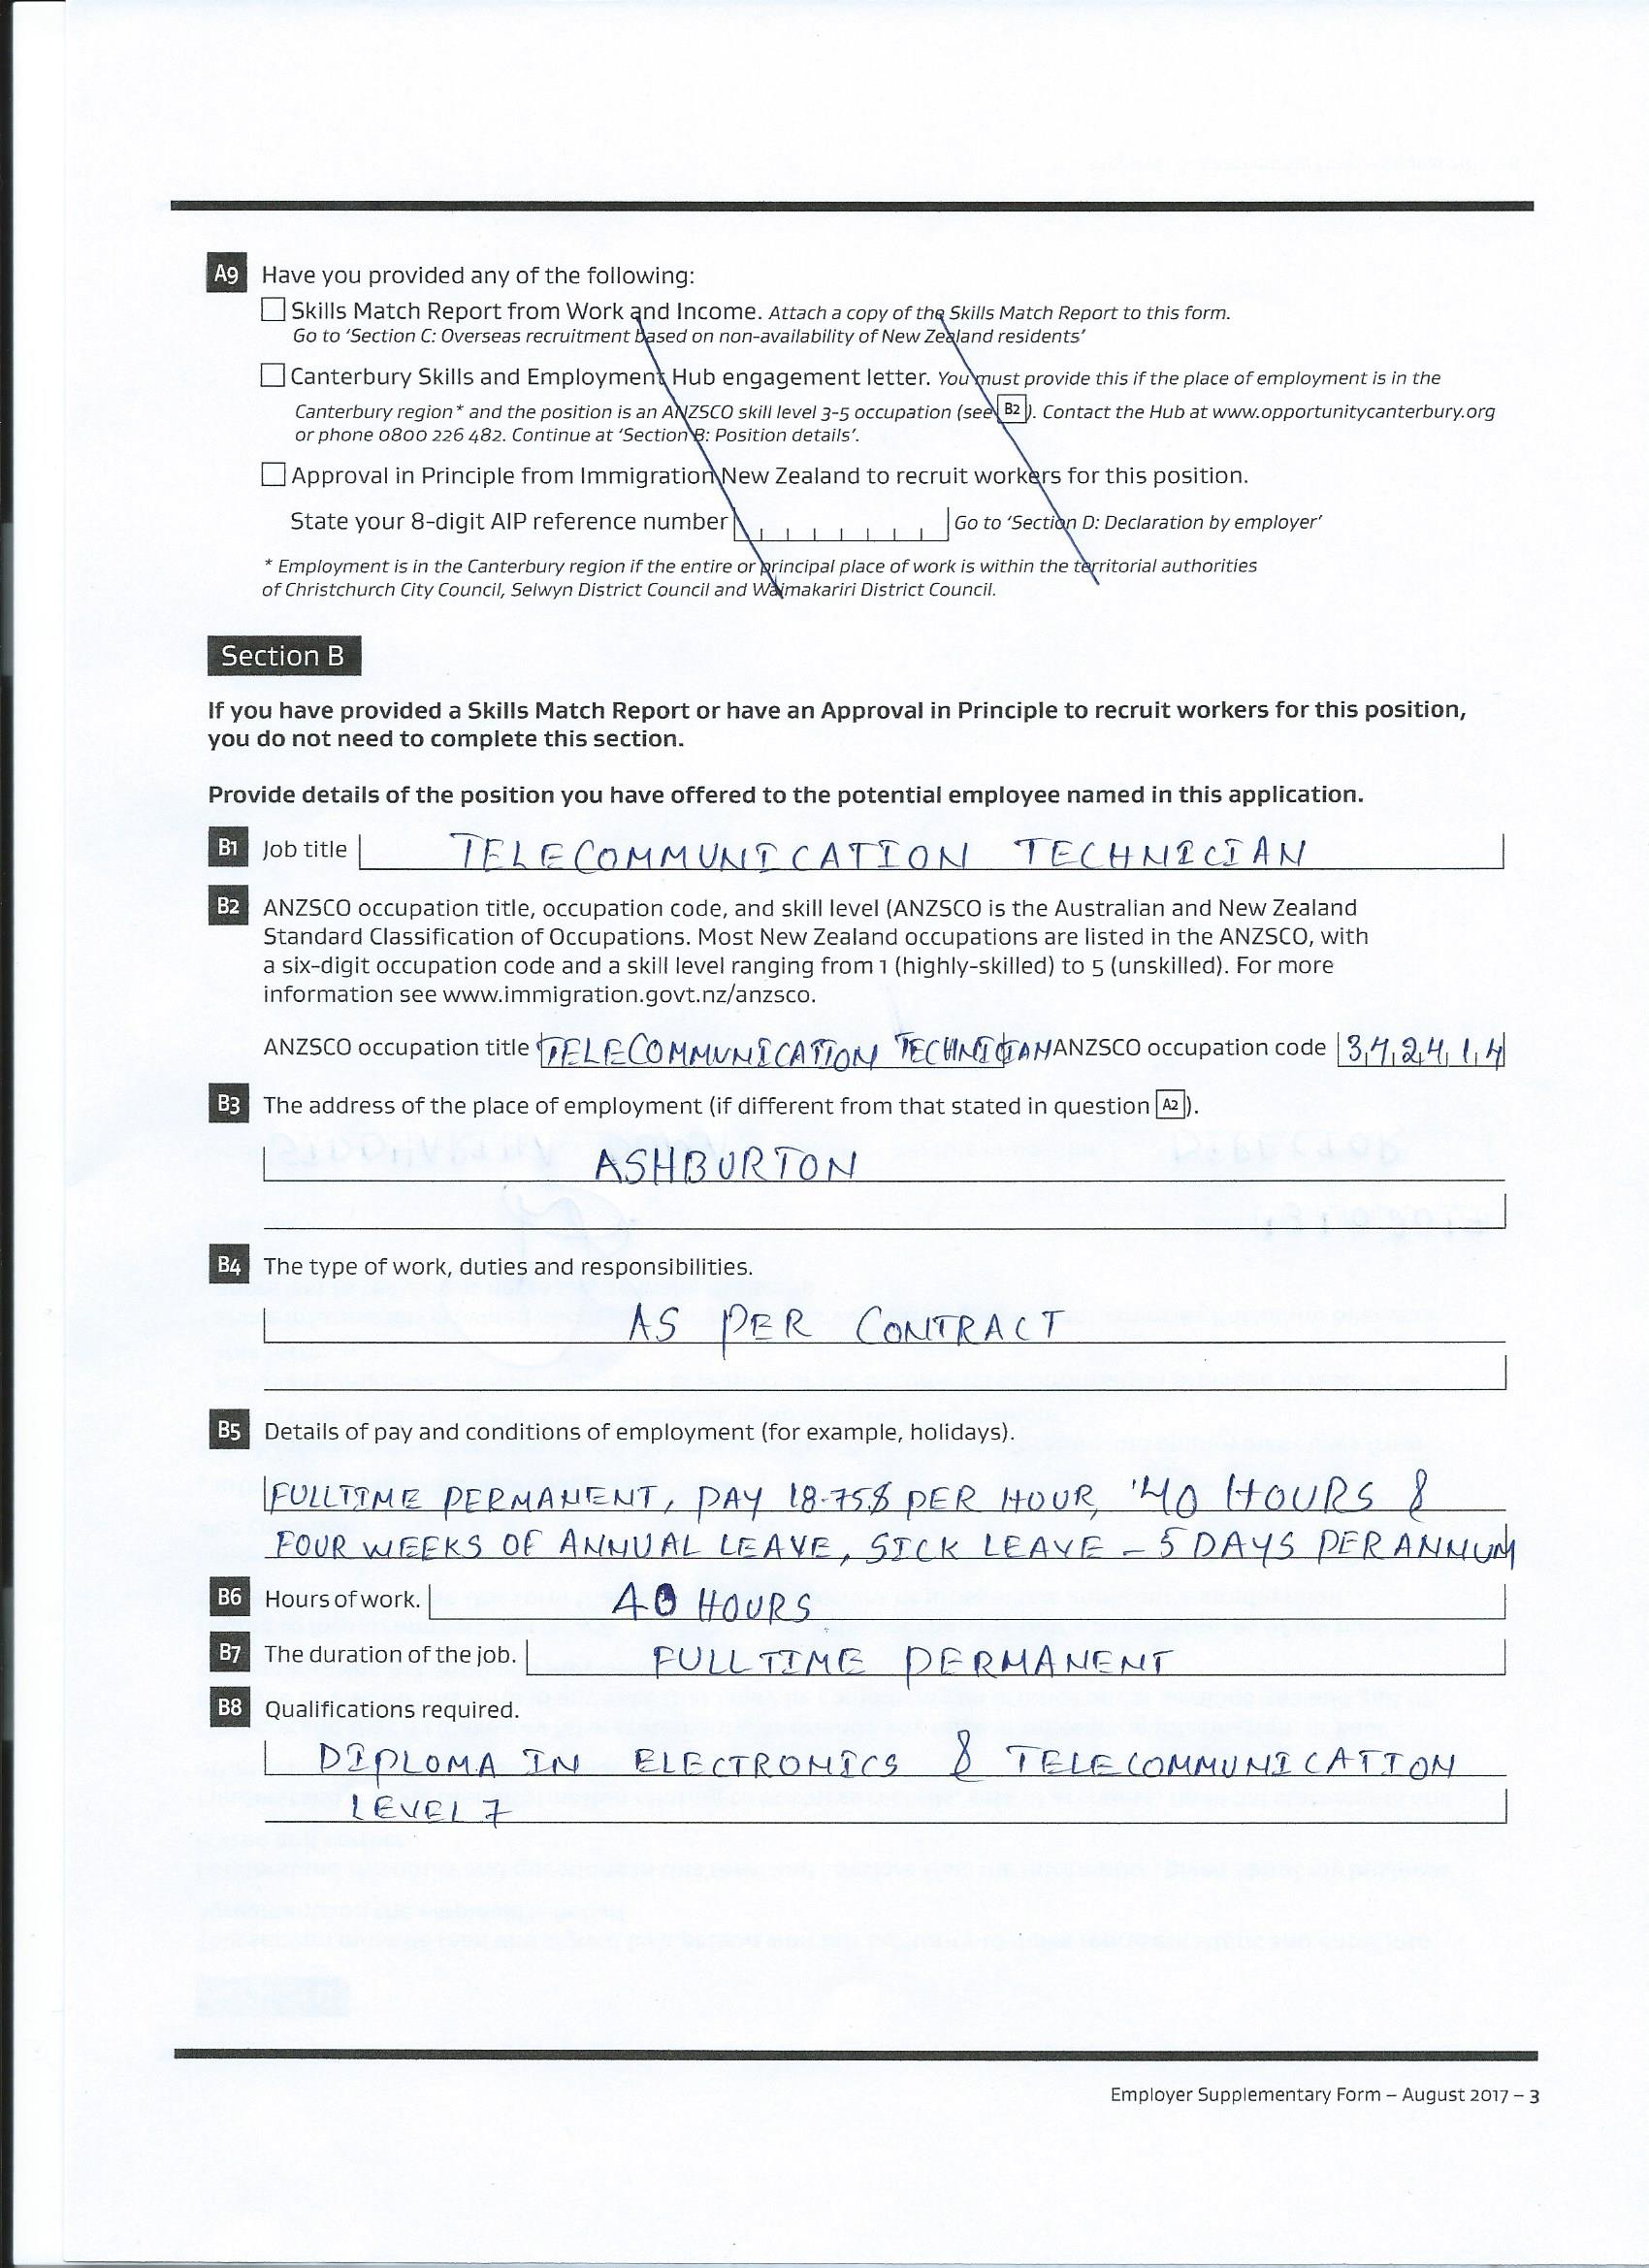 A9 Have you provided any of the following:
Skills Match Report from Work and Income. Attach a copy of the Skills Match Report to this form.
Go to 'Section C: Overseas recruitment based on non-availability of New Zealand residents'
Canterbury Skills and Employment Hub engagement letter. You must provide this if the place of employment is in the
Canterbury region* and the position is an ANZSCO skill level 3-5 occupation (see B2). Contact the Hub at www.opportunitycanterbury.org
or phone 0800 226 482. Continue at 'Section B: Position details'.
Approval in Principle from Immigration New Zealand to recruit workers for this position.
State your 8-digit AIP reference number Go to 'Section D: Declaration by employer'
* Employment is in the Canterbury region if the entire or principal place of work is within the territorial authorities
of Christchurch City Council, Selwyn District Council and Waimakariri District Council.
Section B
If you have provided a Skills Match Report or have an Approval in Principle to recruit workers for this position,
you do not need to complete this section.
Provide details of the position you have offered to the potential employee named in this application.
B1 Job title TELECOMMUNICATION TECHNICIAN
B2 ANZSCO occupation title, occupation code, and skill level (ANZSCO is the Australian and New Zealand
Standard Classification of Occupations. Most New Zealand occupations are listed in the ANZSCO, with
a six-digit occupation code and a skill level ranging from 1 (highly-skilled) to 5 (unskilled). For more
information see www.immigration.govt.nz/anzsco.
ANZSCO occupation title TELECOMMUNICATION TECHNICIAN ANZSCO occupation code 342414
B3 The address of the place of employment (if different from that stated in question A2).
ASHBURTON
B4 The type of work, duties and responsibilities.
AS PER CONTRACT
B5 Details of pay and conditions of employment (for example, holidays).
FULLTIME PERMANENT, PAY 18.75$ PER HOUR, 40 HOURS &
FOUR WEEKS OF ANNUAL LEAVE, SICK LEAVE - 5 DAYS PER ANNUM
B6 Hours of work. 40 HOURS
B7 The duration of the job. FULLTIME PERMANENT
B8 Qualifications required.
DIPLOMA IN ELECTRONICS & TELECOMMUNICATION
LEVEL 7
Employer Supplementary Form – August 2017 – 3